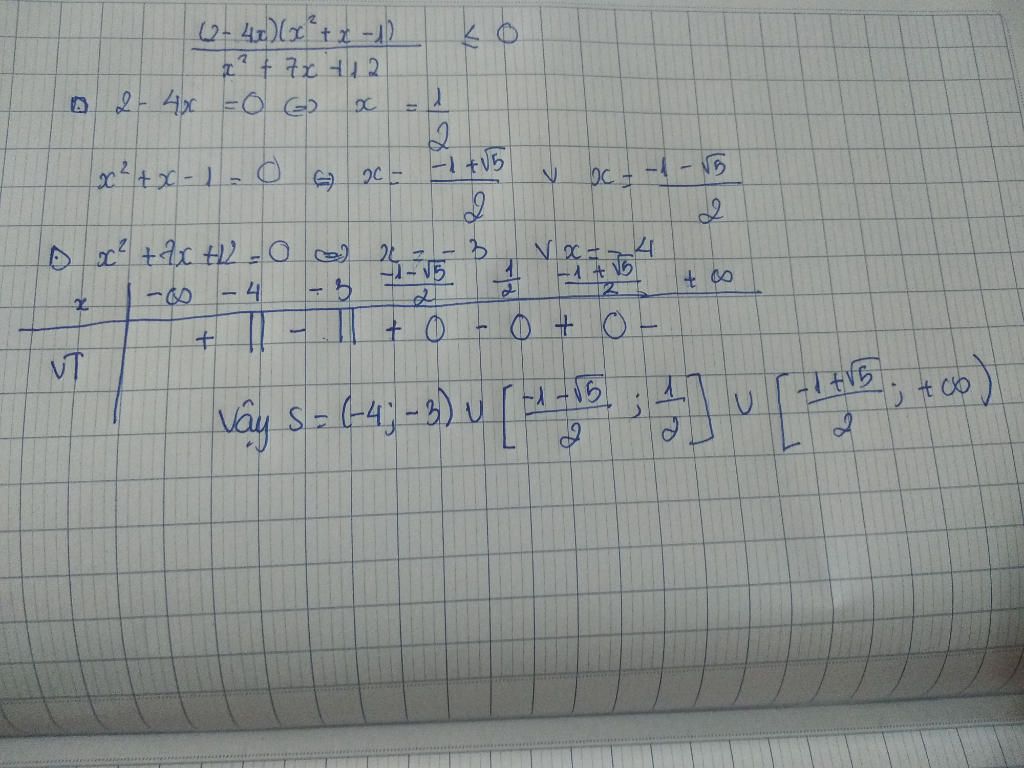 (2 - 4x)(x² + x - 1) / x² + 7x + 12 ≤ 0
2 - 4x = 0 ⇔ x = 1/2
x² + x - 1 = 0 ⇔ x = (-1 + √5)/2 ∨ x = (-1 - √5)/2
x² + 7x + 12 = 0 ⇔ x = -3 ∨ x = -4
x | -∞ -4 -3 (-1 - √5)/2 1/2 (-1 + √5)/2 +∞
VT | + || - || + 0 - 0 + 0 -
Vậy S = (-4; -3) ∪ [(-1 - √5)/2 ; 1/2] ∪ [(-1 + √5)/2 ; +∞)